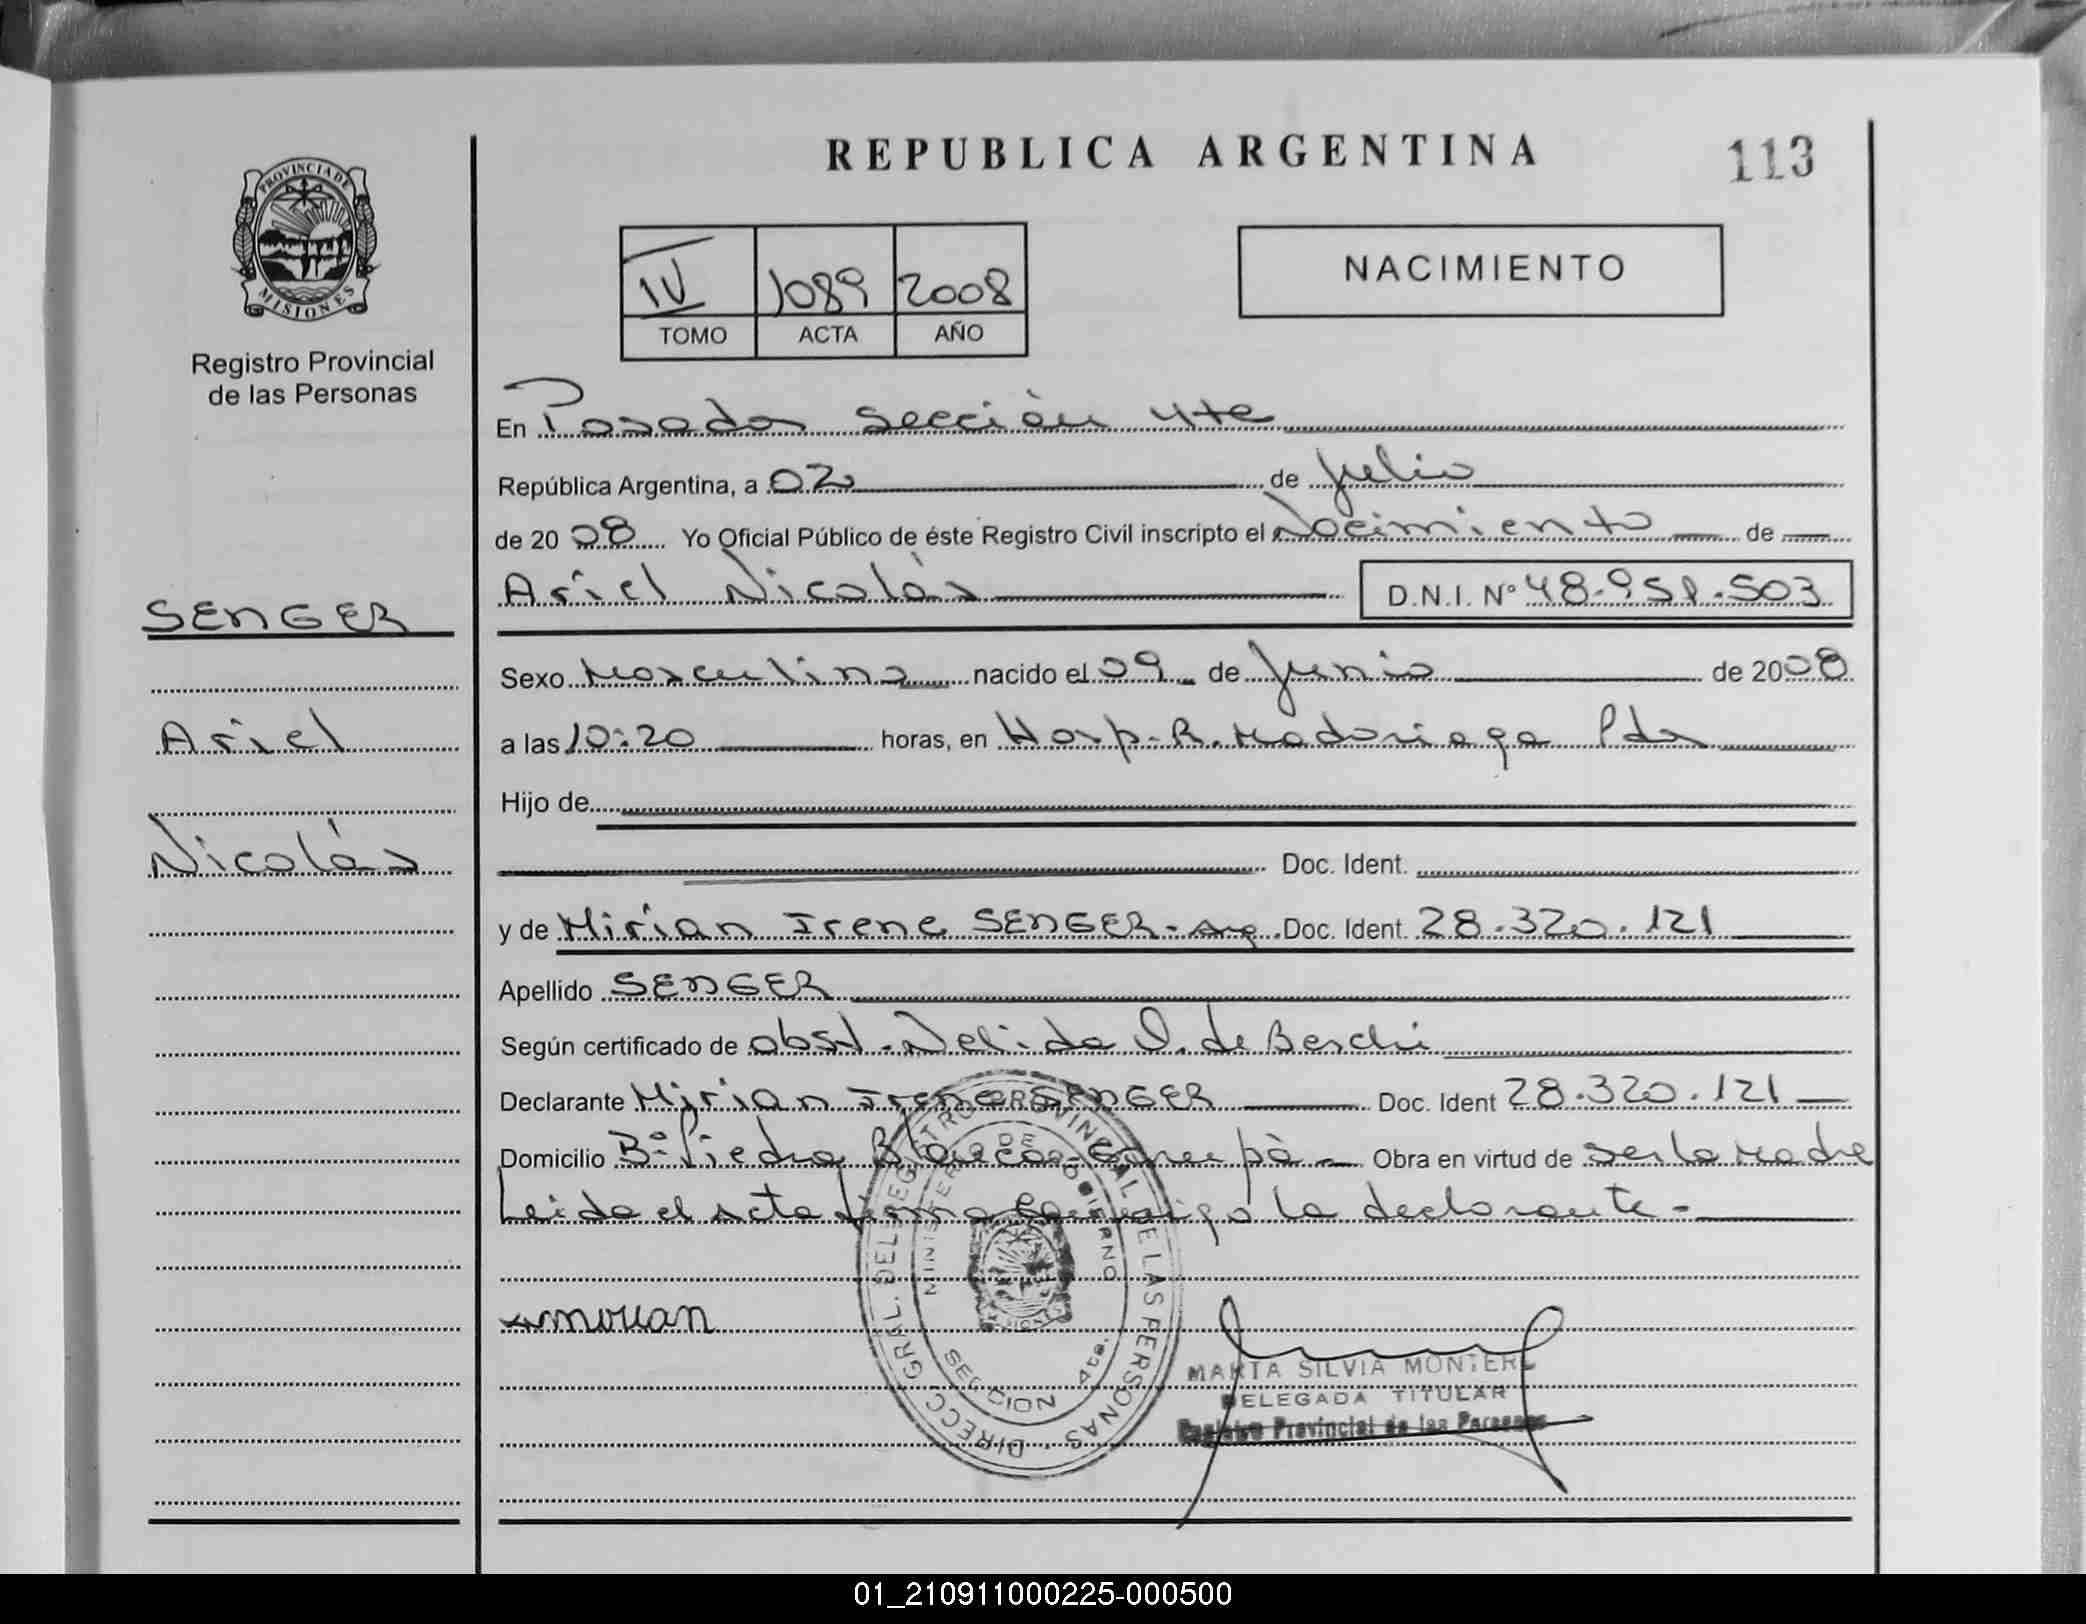 REPUBLICA ARGENTINA
113
PROVINCIA DE
MISIONES
Registro Provincial
de las Personas
IV 1089 2008
TOMO ACTA AÑO
NACIMIENTO
En Posadas Sección 4ta
República Argentina, a 02 de Julio
de 2008 Yo Oficial Público de éste Registro Civil inscripto el Nacimiento de
Ariel Nicolás D.N.I. Nº 48.951.503
SENGER
Ariel
Nicolás
Sexo Masculino nacido el 09 de Junio de 2008
a las 10:20 horas, en Hosp. R. Madariaga Pdas
Hijo de
Doc. Ident.
y de Mirian Irene SENGER - Arg. Doc. Ident. 28.320.121
Apellido SENGER
Según certificado de obst. Nelida O. de Berchi
Declarante Mirian Irene SENGER Doc. Ident 28.320.121
Domicilio Bº Piedra Blanca - Garupà - Obra en virtud de ser la Madre
Leida el acta firma conmigo la declarante -
DIRECC. GRAL. DEL REGISTRO PROVINCIAL DE LAS PERSONAS
MINISTERIO DE GOBIERNO
SECCION 4ta.
MARTA SILVIA MONTERO
DELEGADA TITULAR
Registro Provincial de las Personas
01_210911000225-000500